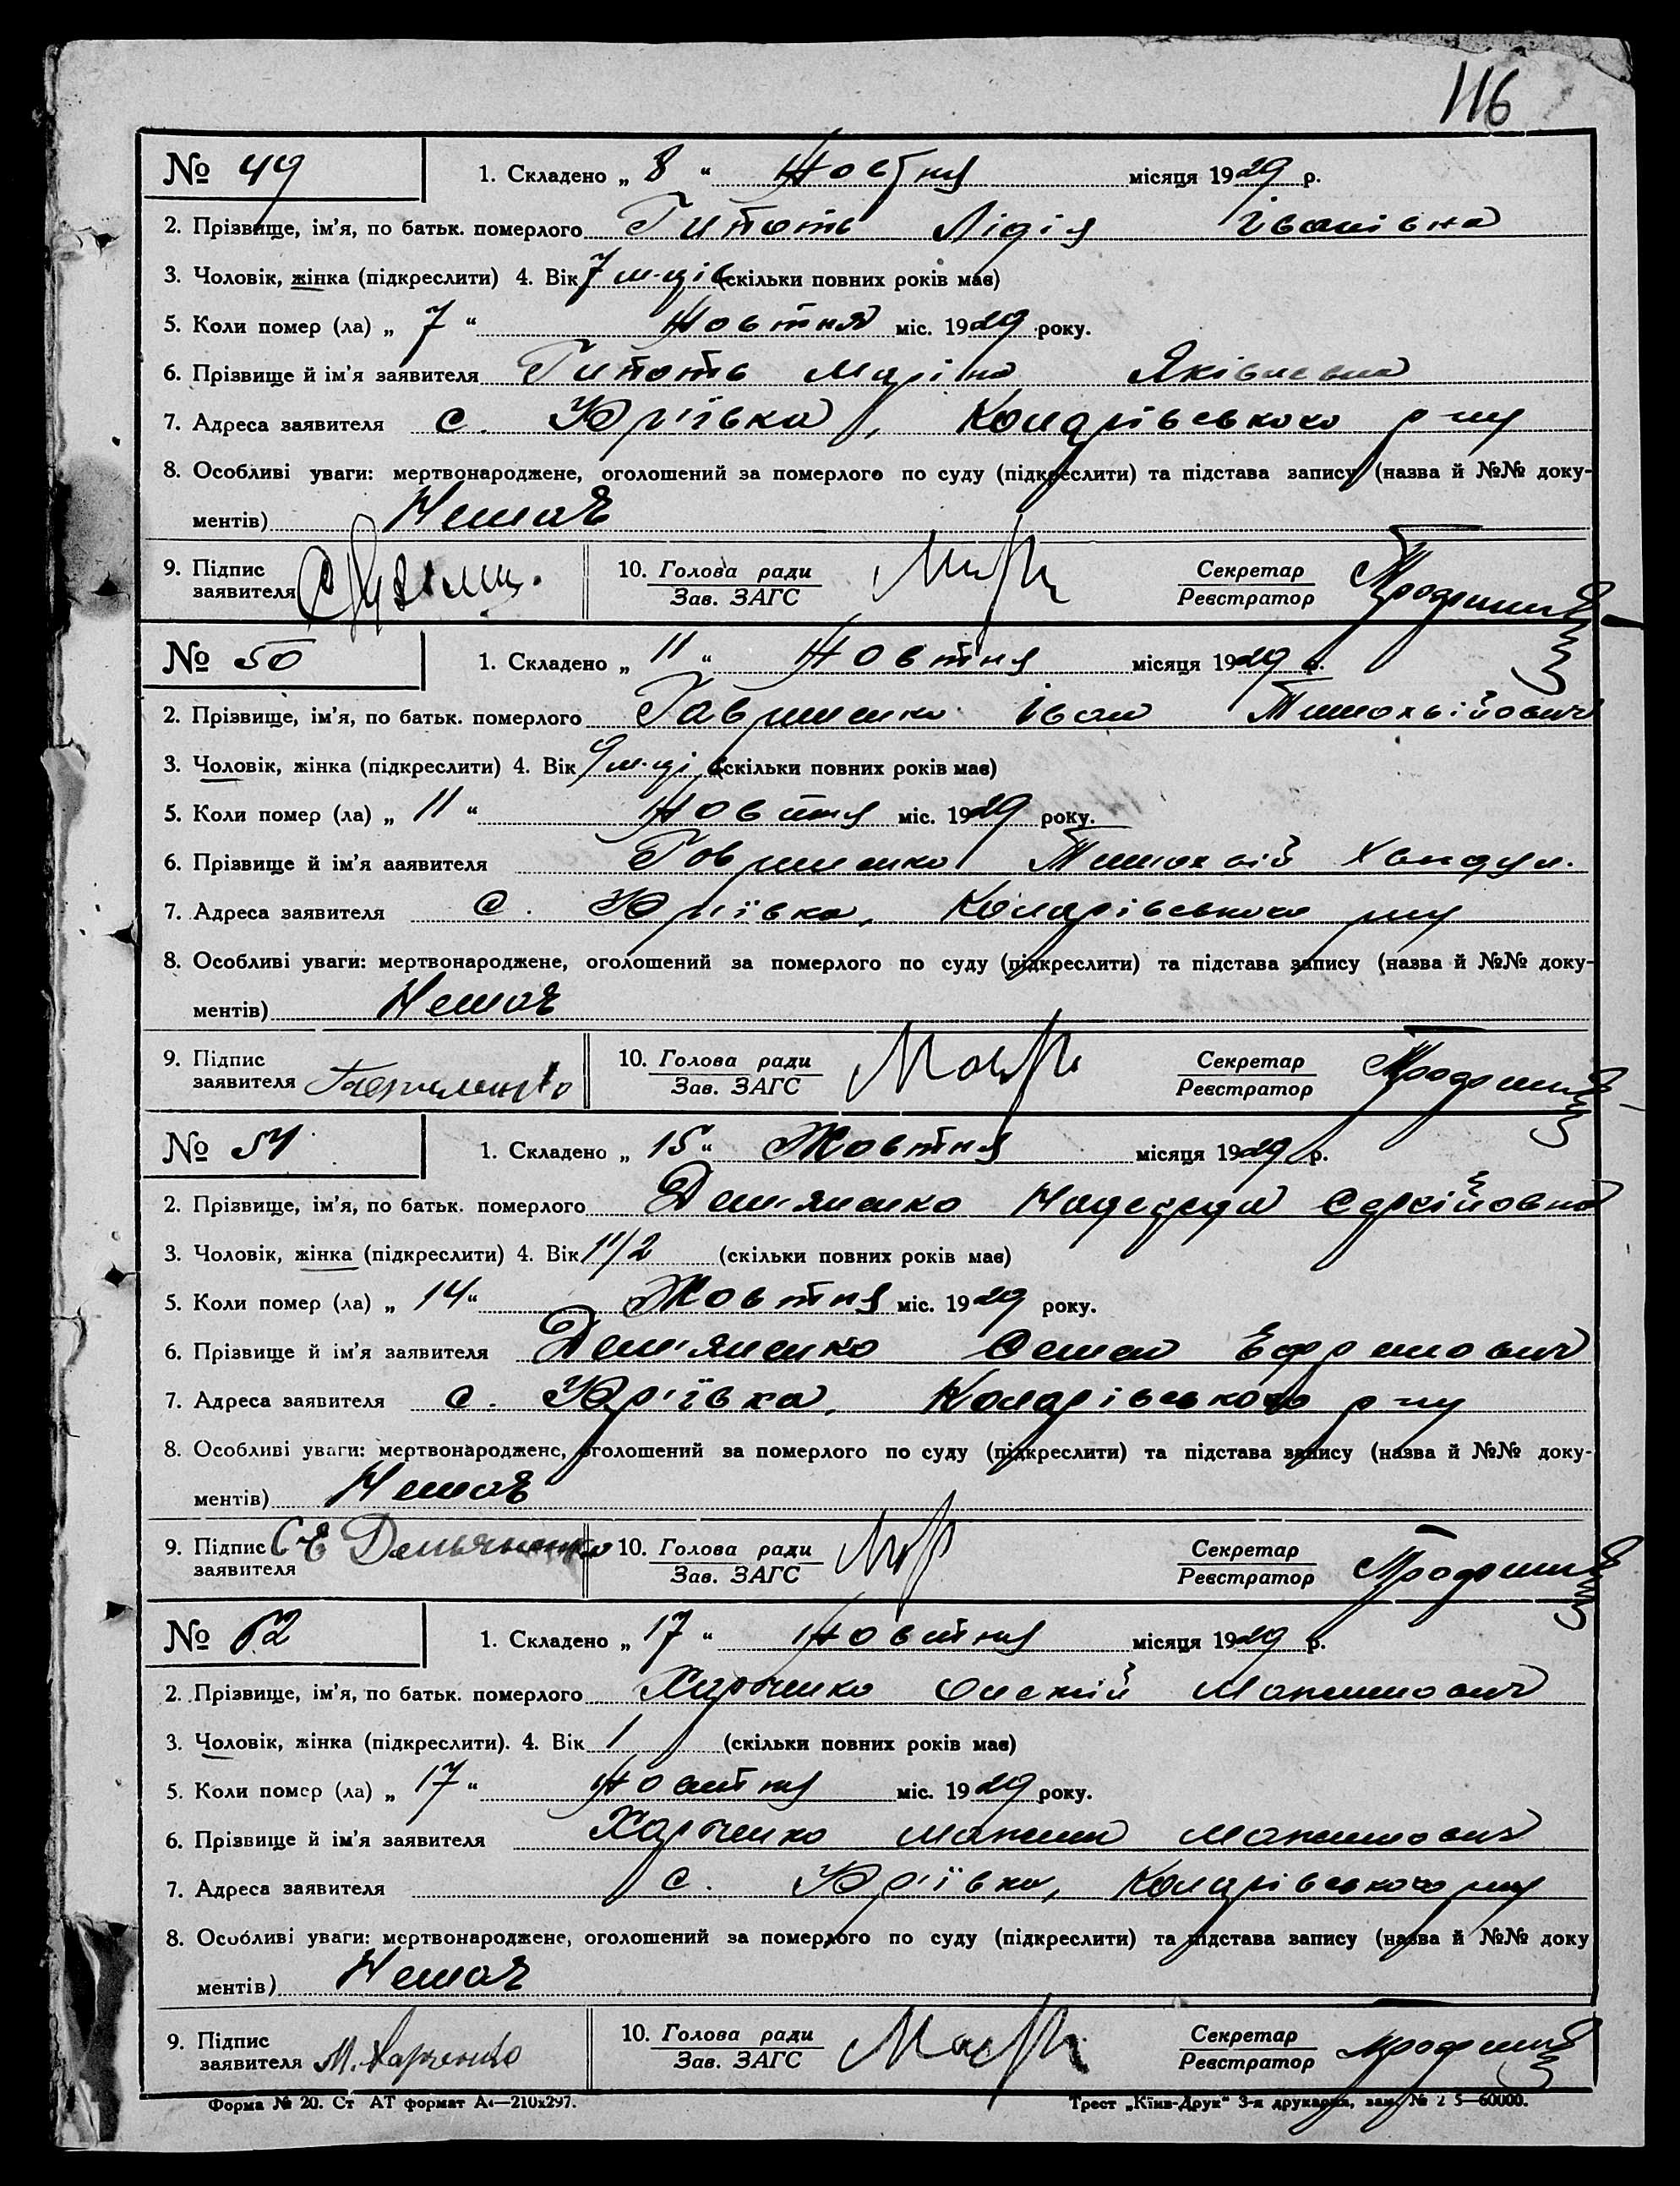 116
№ 49 1. Складено „ 8 “ Жовтня місяця 1929 р.
2. Прізвище, ім'я, по батьк. померлого Лідія Іванівна
3. Чоловік, жінка (підкреслити) 4. Вік 7 м-ців (скільки повних років має)
5. Коли помер (ла) „ 7 “ Жовтня міс. 1929 року.
6. Прізвище й ім'я заявителя
7. Адреса заявителя с. Юр'ївка, р-ну
8. Особливі уваги: мертвонароджене, оголошений за померлого по суду (підкреслити) та підстава запису (назва й №№ доку-
ментів) Немає
9. Підпис 10. Голова ради Секретар
заявителя Зав. ЗАГС Реєстратор
№ 50 1. Складено „ 11 “ Жовтня місяця 1929 р.
2. Прізвище, ім'я, по батьк. померлого Гавриленко Іван
3. Чоловік, жінка (підкреслити) 4. Вік 9 м-ців (скільки повних років має)
5. Коли помер (ла) „ 11 “ Жовтня міс. 1929 року.
6. Прізвище й ім'я заявителя Гавриленко
7. Адреса заявителя с. Юр'ївка, р-ну
8. Особливі уваги: мертвонароджене, оголошений за померлого по суду (підкреслити) та підстава запису (назва й №№ доку-
ментів) Немає
9. Підпис 10. Голова ради Секретар
заявителя Гавриленко Зав. ЗАГС Реєстратор
№ 51 1. Складено „ 15 “ Жовтня місяця 1929 р.
2. Прізвище, ім'я, по батьк. померлого Дем'яненко
3. Чоловік, жінка (підкреслити) 4. Вік 1 1/2 (скільки повних років має)
5. Коли помер (ла) „ 14 “ Жовтня міс. 1929 року.
6. Прізвище й ім'я заявителя Дем'яненко
7. Адреса заявителя с. Юр'ївка, р-ну
8. Особливі уваги: мертвонароджене, оголошений за померлого по суду (підкреслити) та підстава запису (назва й №№ доку-
ментів) Немає
9. Підпис 10. Голова ради Секретар
заявителя Зав. ЗАГС Реєстратор
№ 52 1. Складено „ 17 “ Жовтня місяця 1929 р.
2. Прізвище, ім'я, по батьк. померлого Харченко Максимович
3. Чоловік, жінка (підкреслити). 4. Вік 1 (скільки повних років має)
5. Коли помер (ла) „ 17 “ Жовтня міс. 1929 року.
6. Прізвище й ім'я заявителя Харченко Максим Максимович
7. Адреса заявителя с. Юр'ївка, р-ну
8. Особливі уваги: мертвонароджене, оголошений за померлого по суду (підкреслити) та підстава запису (назва й №№ доку
ментів) Немає
9. Підпис 10. Голова ради Секретар
заявителя М. Харченко Зав. ЗАГС Реєстратор
Форма № 20. Ст АТ формат А4—210x297. Трест „Київ-Друк“ 3-я друкарня, зам. № 2 5—60000.